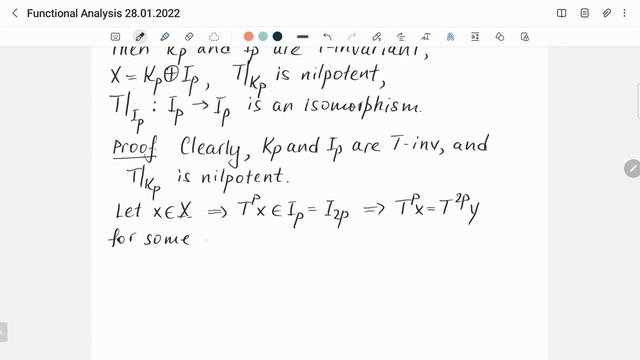 Functional Analysis 28.01.2022
Then Kp and Ip are T-invariant,
X = Kp ⊕ Ip, T|Kp is nilpotent,
T|Ip : Ip → Ip is an isomorphism.
Proof. Clearly, Kp and Ip are T-inv, and
T|Kp is nilpotent.
Let x ∈ X ⟹ T^p x ∈ Ip = I2p ⟹ T^p x = T^2p y
for some